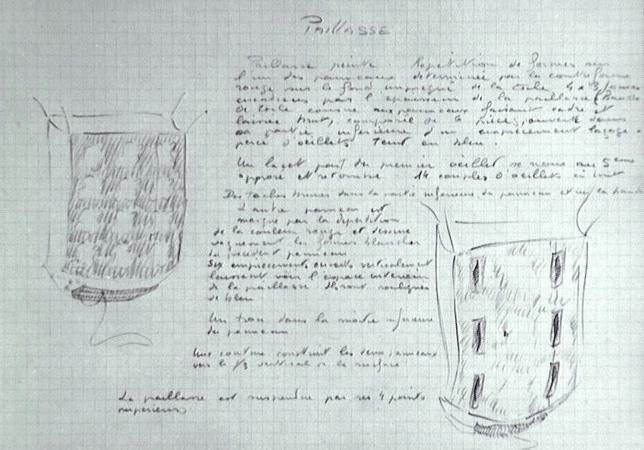 PAILLASSE
Paillasse peinte Répétition de formes sur
l'un des panneaux déterminée par la contre forme
rouge sur le fond imprégné de la toile 4 x 3 formes
encadrées par l'épaisseur de la paillasse
de toile comme aux panneaux faisant cadre et
la pièce pouvant
sa partie inférieure d'un empiècement laçage
percé d'oeillets Teint en bleu.
Un lacet part du premier oeillet se noue au 5ème
opposé et retombe 14 couples d'oeillets en tout
Des taches brunes dans la partie inférieure du panneau et sur la bande
L'autre panneau est
marqué par la répétition
de la couleur rouge et dessine
vaguement les formes blanches
du précédent panneau
Six empiècements, ouverts, verticalement
laissent voir l'espace intérieur
de la paillasse Ils sont soulignés
de bleu
Un trou dans la moitié inférieure
du panneau
Une couture construit les deux panneaux
vers le 1/3 vertical de la surface
La paillasse est suspendue par ses 4 points
supérieurs